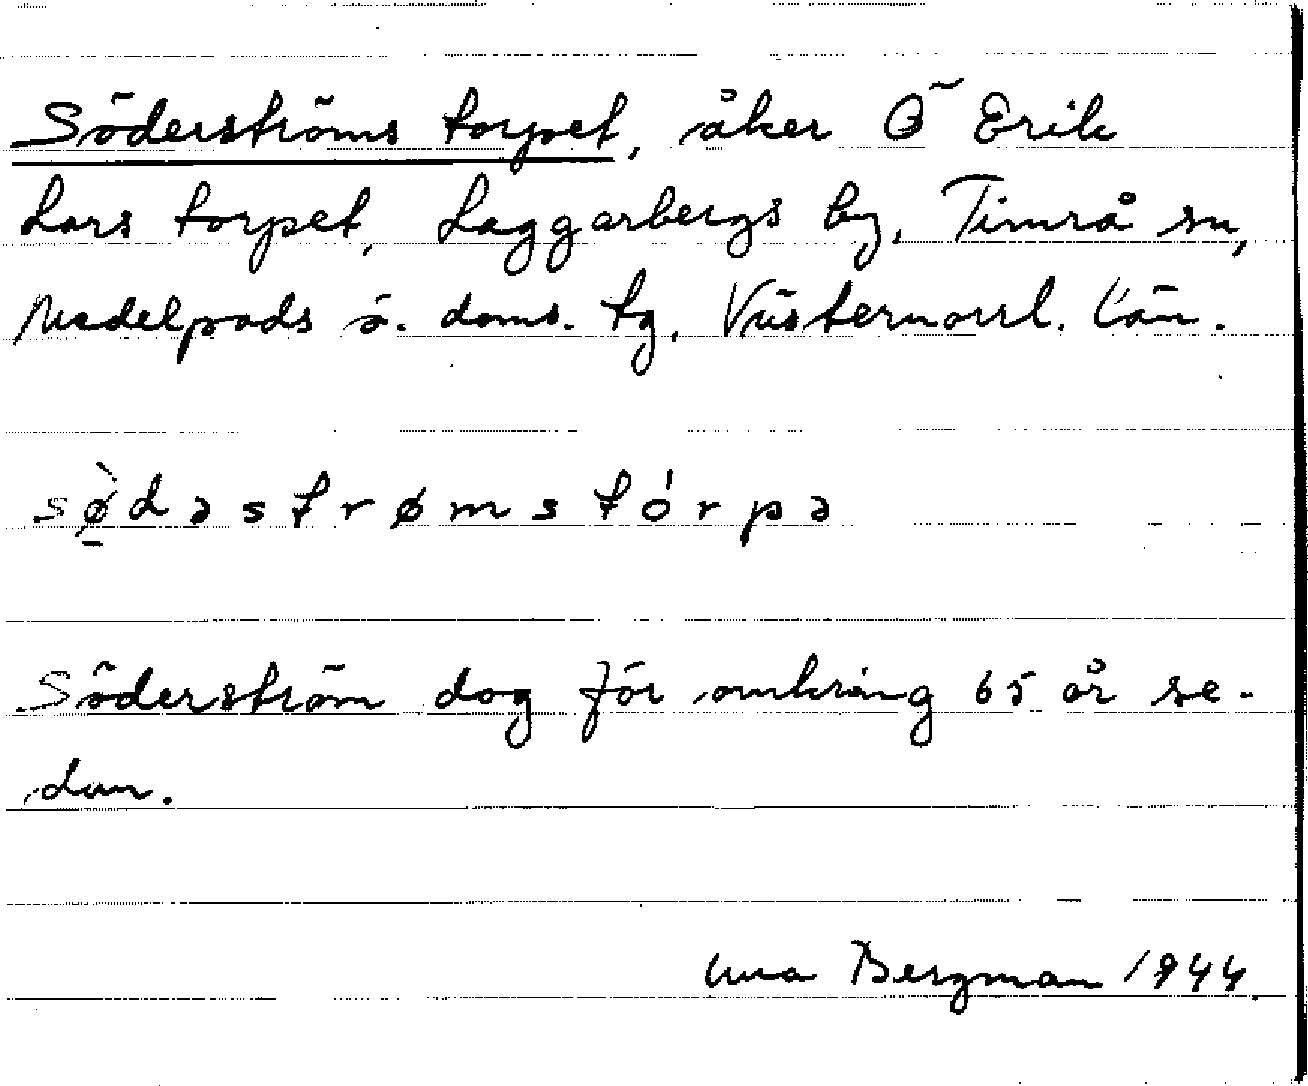 Söderströms torpet, åker Ö Erik
Lars torpet, Laggarbergs by, Timrå sn,
Medelpads ö. doms. tg, Västernorrl. län.
sø̀dəstrømstórpə
Söderström dog för omkring 65 år se-
dan.
Bergman 1944.